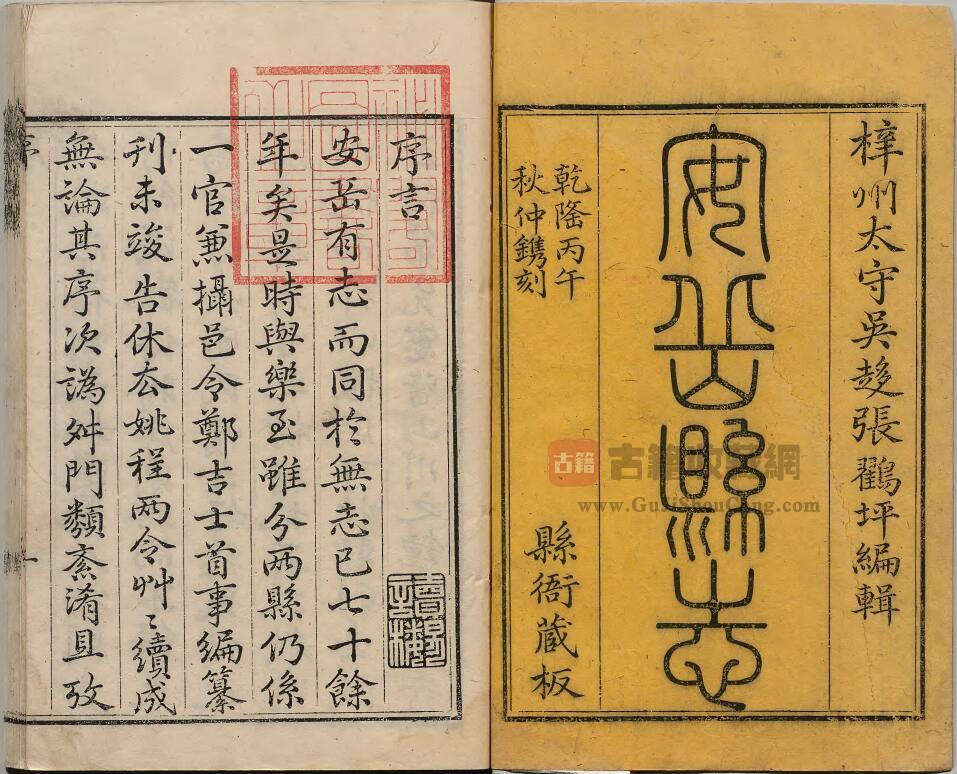 梓州太守吳趍張鸐坪編輯
安岳縣志
乾隆丙午
秋仲鐫刻
縣衙藏板
序言
安岳有志而同於無志已七十餘
年矣是時與樂至雖分兩縣仍係
一官兼攝邑令鄭吉士首事編纂
刋未竣告休厺姚程两令艸〻續成
無論其序次譌舛門類紊淆且攷
序
一
古籍
www.GujiShouCang.com